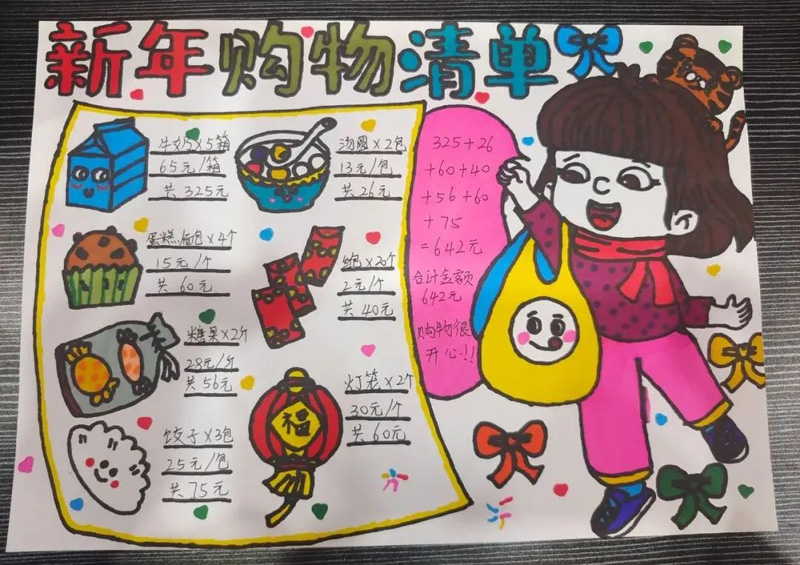 新年购物清单
牛奶×5箱
65元/箱
共325元
汤圆×2包
13元/包
共26元
蛋糕面包×4个
15元/个
共60元
红包×20个
2元/个
共40元
糖果×2个
28元/个
共56元
灯笼×2个
30元/个
共60元
福
饺子×3包
25元/包
共75元
325+26
+60+40
+56+60
+75
=642元
合计金额
642元
购物很
开心!!